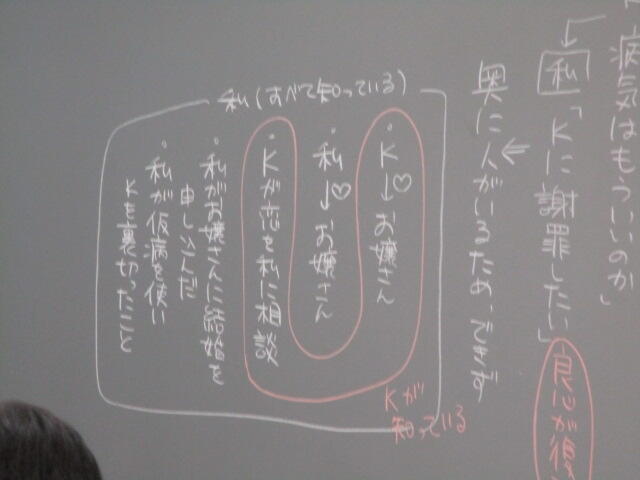 病気はもういいのか」
私「Kに謝罪したい」良心が復
奥に人がいるため、できず
私(すべて知っている)
・K→♡お嬢さん
・私→♡お嬢さん
・Kが恋を私に相談
・私がお嬢さんに結婚を
申し込んだ
・私が仮病を使い
Kを裏切ったこと
Kが
知っている